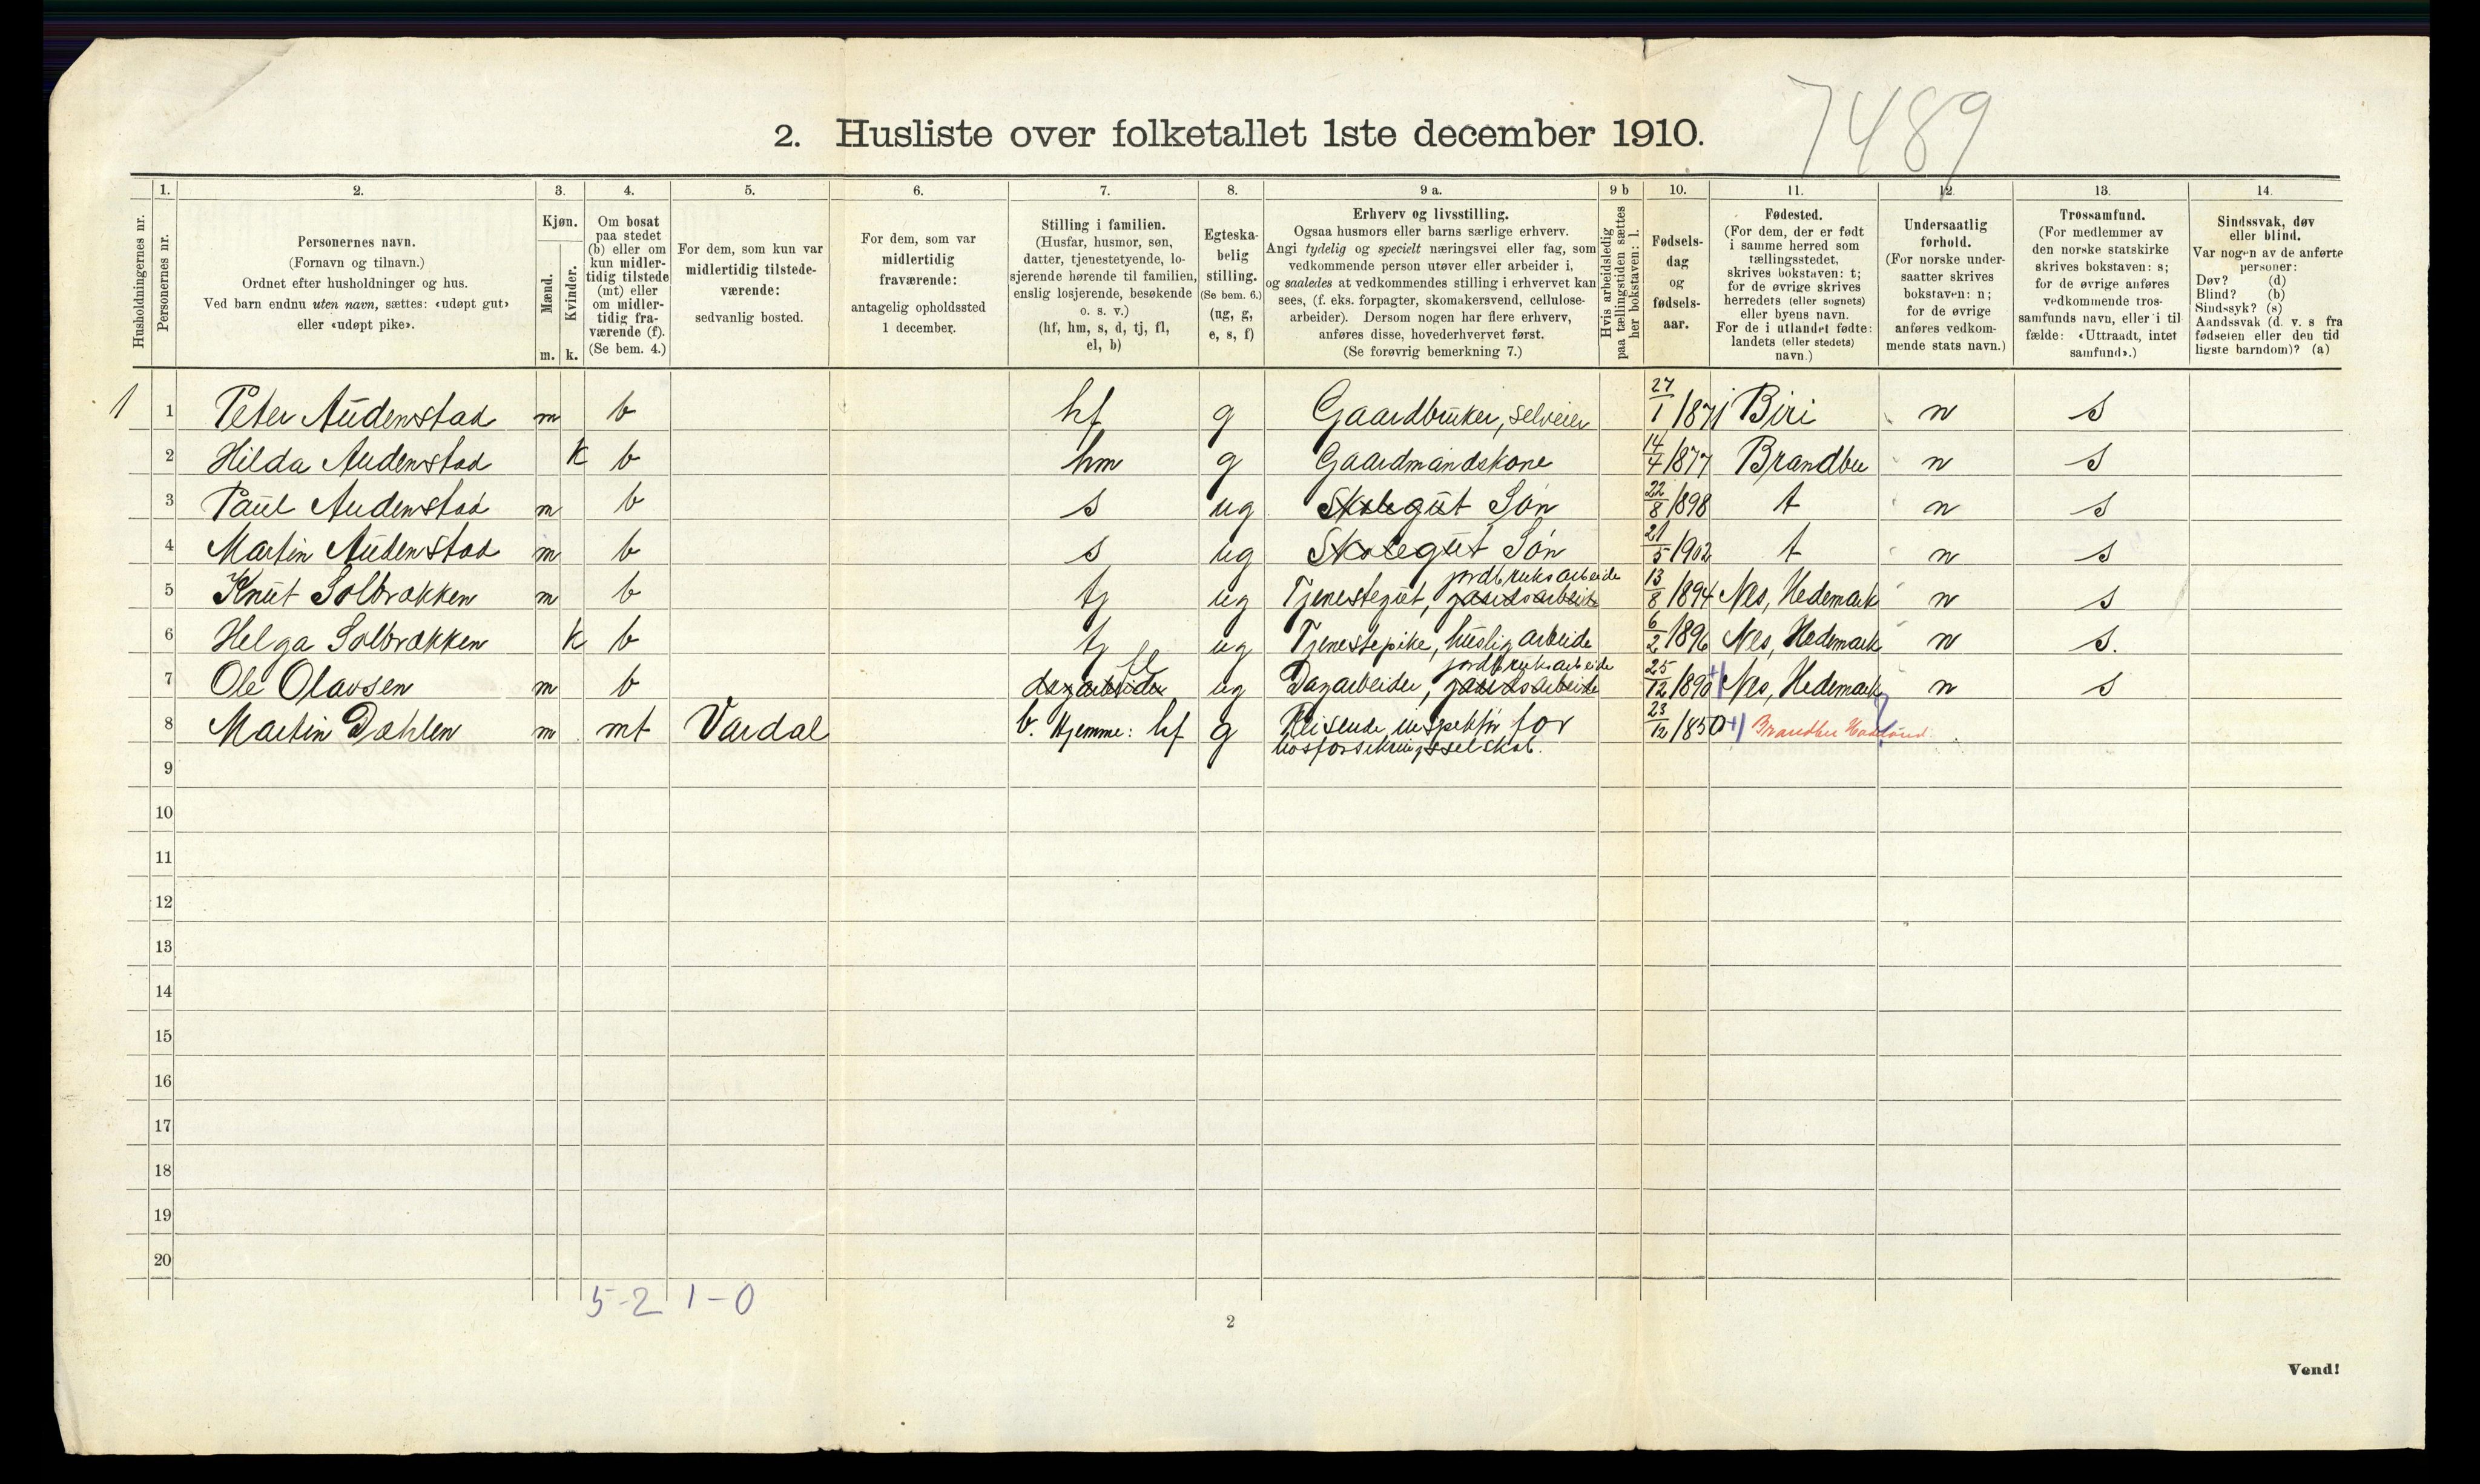 7489
2. Husliste over folketallet 1ste december 1910.
Husholdningernes nr.
1. Personernes nr.
2. Personernes navn.
(Fornavn og tilnavn.)
Ordnet efter husholdninger og hus.
Ved barn endnu uten navn, sættes: «udøpt gut»
eller «udøpt pike».
3. Kjøn.
Mænd. m.
Kvinder. k.
4. Om bosat
paa stedet
(b) eller om
kun midler-
tidig tilstede
(mt) eller
om midler-
tidig fra-
værende (f).
(Se bem. 4.)
5. For dem, som kun var
midlertidig tilstede-
værende:
sedvanlig bosted.
6. For dem, som var
midlertidig
fraværende:
antagelig opholdssted
1 december.
7. Stilling i familien.
(Husfar, husmor, søn,
datter, tjenestetyende, lo-
sjerende hørende til familien,
enslig losjerende, besøkende
o. s. v.)
(hf, hm, s, d, tj, fl,
el, b)
8. Egteska-
belig
stilling.
(Se bem. 6.)
(ug, g,
e, s, f)
9 a. Erhverv og livsstilling.
Ogsaa husmors eller barns særlige erhverv.
Angi tydelig og specielt næringsvei eller fag, som
vedkommende person utøver eller arbeider i,
og saaledes at vedkommendes stilling i erhvervet kan
sees, (f. eks. forpagter, skomakersvend, cellulose-
arbeider). Dersom nogen har flere erhverv,
anføres disse, hovederhvervet først.
(Se forøvrig bemerkning 7.)
9 b Hvis arbeidsledig
paa tællingstiden sættes
her bokstaven: l.
10. Fødsels-
dag
og
fødsels-
aar.
11. Fødested.
(For dem, der er født
i samme herred som
tællingsstedet,
skrives bokstaven: t;
for de øvrige skrives
herredets (eller sognets)
eller byens navn.
For de i utlandet fødte:
landets (eller stedets)
navn.)
12. Undersaatlig
forhold.
(For norske under-
saatter skrives
bokstaven: n;
for de øvrige
anføres vedkom-
mende stats navn.)
13. Trossamfund.
(For medlemmer av
den norske statskirke
skrives bokstaven: s;
for de øvrige anføres
vedkommende tros-
samfunds navn, eller i til-
fælde: «Uttraadt, intet
samfund».)
14. Sindssvak, døv
eller blind.
Var nogen av de anførte
personer:
Døv? (d)
Blind? (b)
Sindssyk? (s)
Aandssvak (d. v. s. fra
fødselen eller den tid-
ligste barndom)? (a)
1 1 Peter Audenstad m b hf g Gaardbruker, selveier 27/1 1871 Biri n s
2 Hilda Audenstad k b hm g Gaardmandskone 14/4 1877 Brandbu n s
3 Paul Audenstad m b s ug Skolegut Søn 22/8 1898 t n s
4 Martin Audenstad m b s ug Skolegut Søn 21/5 1902 t n s
5 Knut Solbrækken m b tj ug Tjenestegut, gaardsarbeide jordbruksarbeide 13/8 1894 Nes, Hedemark n s
6 Helga Solbrækken k b tj ug Tjenestepike, huslig arbeide 6/2 1896 Nes, Hedemark n s.
7 Ole Olavsen m b dagarbeider fl ug Dagarbeider, gaardsarbeide jordbruksarbeide 25/12 1890 Nes, Hedemark n s
8 Martin Dahlen m mt Vardal b. Hjemme: hf g Reisende inspektør for 23/12 1850 Brandbu Hadeland
9
10
11
12
13
14
15
16
17
18
19
20
5-2 1-0
2
Vend!